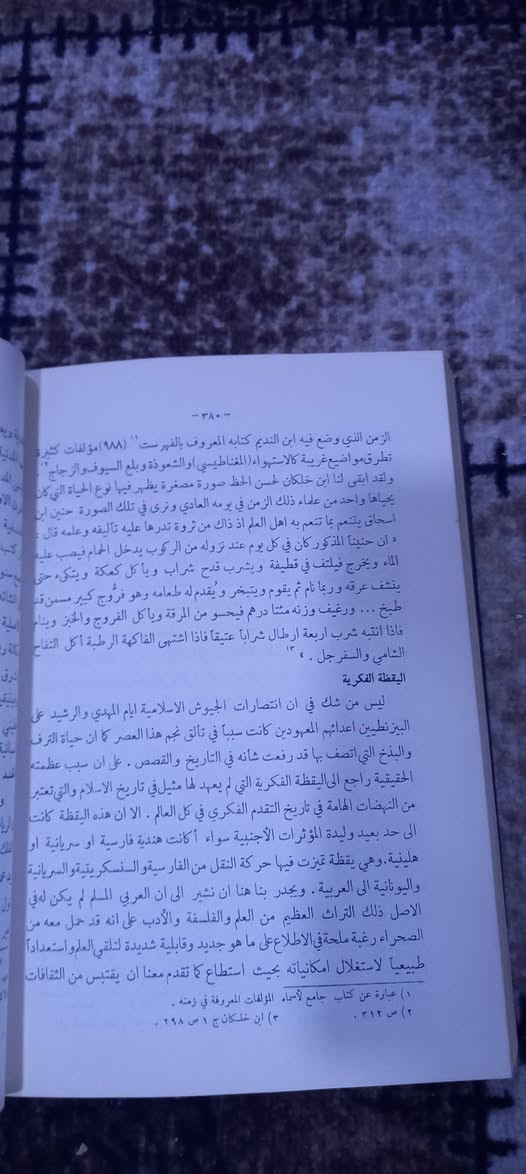 — ٣٨٠ —
الزمن الذي وضع فيه ابن النديم كتابه المعروف بالفهرست ١) (٩٨٨) مؤلفات كثيرة
تطرق مواضيع غريبة كالاستهواء (المغناطيسي) والشعوذة وبلع السيوف والزجاج ٢).
ولقد ابقى لنا ابن خلكان لحسن الحظ صورة مصغرة يظهر فيها نوع الحياة التي كان
يحياها واحد من علماء ذلك الزمن في يومه العادي ونرى في تلك الصورة حنين ابن
اسحاق يتنعم بما تنعم به اهل العلم اذ ذاك من ثروة تدرها عليه تآليفه وعلمه قال :
« ان حنيناً المذكور كان في كل يوم عند نزوله من الركوب يدخل الحمام فيصب عليه
الماء ويخرج فيلتف في قطيفة ويشرب قدح شراب ويأكل كعكة ويتكىء حتى
ينشف عرقه وربما نام ثم يقوم ويتبخر ويُقدم له طعامه وهو فرُّوج كبير مسمن قد
طبخ ... ورغيف وزنه مئتا درهم فيحسو من المرقة ويأكل الفروج والخبز وينام
فاذا انتبه شرب اربعة ارطال شراباً عتيقاً فاذا اشتهى الفاكهة الرطبة أكل التفاح
الشامي والسفرجل . » ٣)
اليقظة الفكرية
ليس من شك في ان انتصارات الجيوش الاسلامية ايام المهدي والرشيد على
البيزنطيين اعدائهم المعهودين كانت سبباً في تألق نجم هذا العصر كما ان حياة الترف
والبذخ التي اتصف بها قد رفعت شأنه في التاريخ والقصص . على ان سبب عظمته
الحقيقية راجع الى اليقظة الفكرية التي لم يعهد لها مثيل في تاريخ الاسلام والتي تعتبر
من النهضات الهامة في تاريخ التقدم الفكري في كل العالم . الا ان هذه اليقظة كانت
الى حد بعيد وليدة المؤثرات الأجنبية سواء أكانت هندية فارسية او سريانية او
هلينية. وهي يقظة تميزت فيها حركة النقل من الفارسية والسنسكريتية والسريانية
واليونانية الى العربية . ويجدر بنا هنا ان نشير الى ان العربي المسلم لم يكن له في
الاصل ذلك التراث العظيم من العلم والفلسفة والأدب على انه قد حمل معه من
الصحراء رغبة ملحة في الاطلاع على ما هو جديد وقابلية شديدة لتلقي العلم واستعداداً
طبيعياً لاستغلال امكانياته بحيث استطاع كما تقدم معنا ان يقتبس من الثقافات
١) عبارة عن كتاب جامع لأسماء المؤلفات المعروفة في زمنه .
٢) ص ٣١٢ . ٣) ابن خلكان ج ١ ص ٢٩٨ .